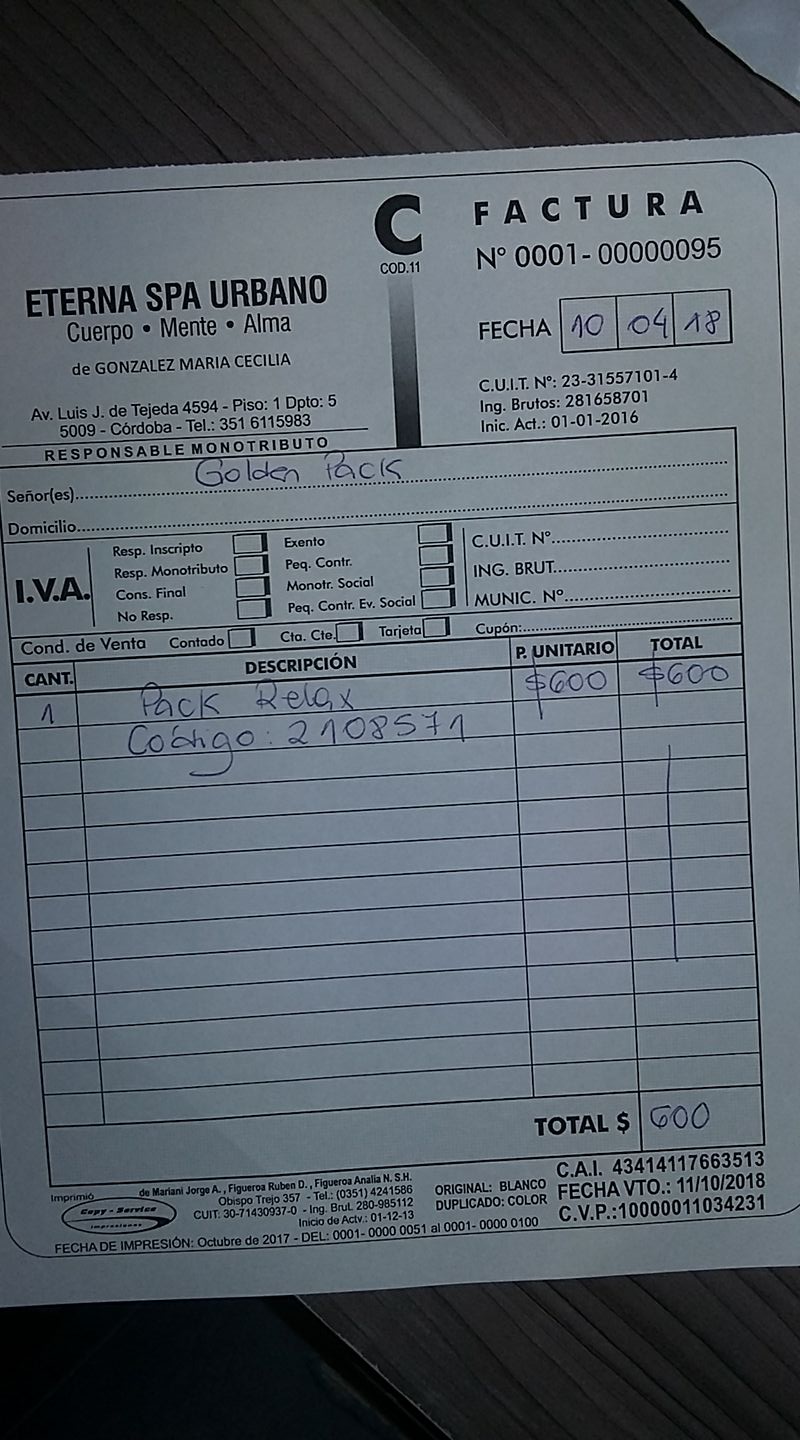 C
COD.11
FACTURA
Nº 0001-00000095
ETERNA SPA URBANO
Cuerpo • Mente • Alma
de GONZALEZ MARIA CECILIA
FECHA 10 04 18
Av. Luis J. de Tejeda 4594 - Piso: 1 Dpto: 5
5009 - Córdoba - Tel.: 351 6115983
RESPONSABLE MONOTRIBUTO
C.U.I.T. Nº: 23-31557101-4
Ing. Brutos: 281658701
Inic. Act.: 01-01-2016
Señor(es) Golden Pack
Domicilio
I.V.A.
Resp. Inscripto
Resp. Monotributo
Cons. Final
No Resp.
Exento
Peq. Contr.
Monotr. Social
Peq. Contr. Ev. Social
C.U.I.T. Nº
ING. BRUT.
MUNIC. Nº
Cond. de Venta Contado Cta. Cte. Tarjeta Cupón:
CANT. DESCRIPCIÓN P. UNITARIO TOTAL
1 Pack Relax $600 $600
Código: 2108571
TOTAL $ 600
Imprimió
Copy - Service
impresiones
de Mariani Jorge A., Figueroa Ruben D., Figueroa Analia N. S.H.
Obispo Trejo 357 - Tel.: (0351) 4241586
CUIT: 30-71430937-0 - Ing. Brut. 280-985112
Inicio de Actv.: 01-12-13
ORIGINAL: BLANCO
DUPLICADO: COLOR
C.A.I. 43414117663513
FECHA VTO.: 11/10/2018
C.V.P.:10000011034231
FECHA DE IMPRESIÓN: Octubre de 2017 - DEL: 0001- 0000 0051 al 0001- 0000 0100